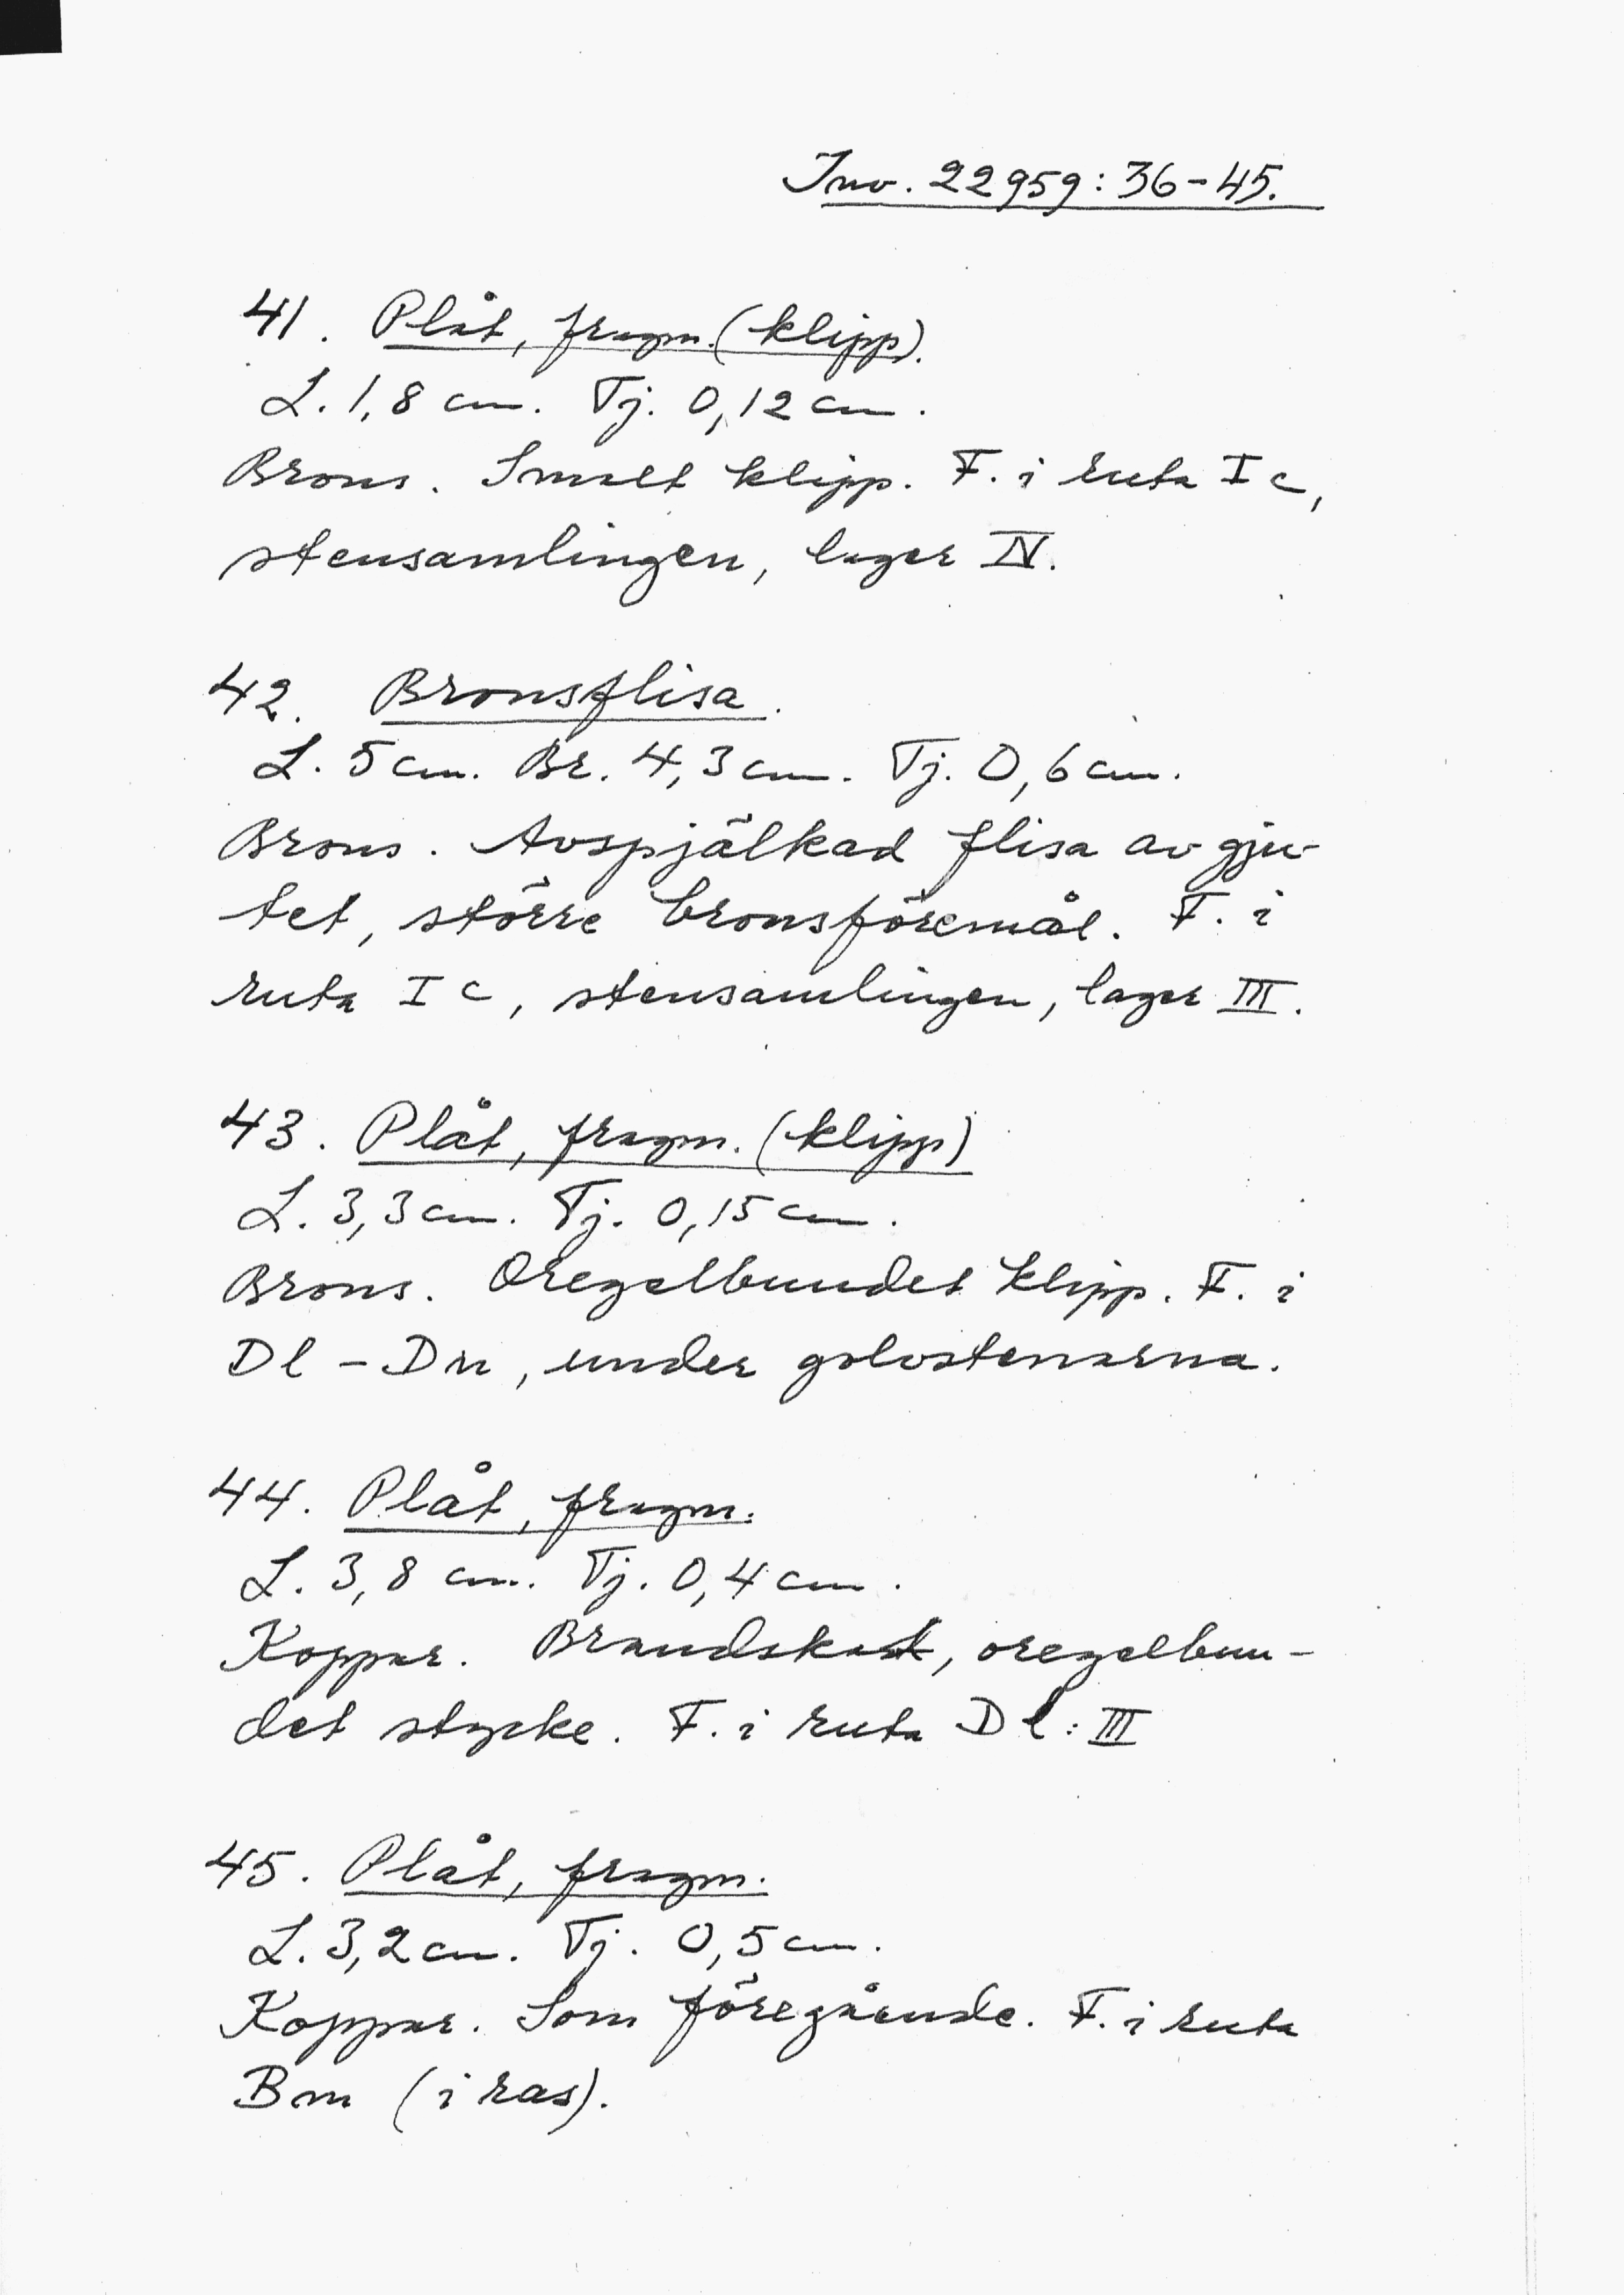 Inv. 22959:36-45.
41. Plåt, fragm. (klipp).
L. 1,8 cm. Tj. 0,12 cm.
Brons. Smalt klipp. F. i ruta I c,
stensamlingen, lager IV.
42. Bronsflisa.
L. 5 cm. Br. 4,3 cm. Tj. 0,6 cm.
Brons. Avspjälkad flisa av gju-
tet, större bronsföremål. F. i
ruta I c, stensamlingen, lager III.
43. Plåt, fragm. (klipp)
L. 3,3 cm. Tj. 0,15 cm.
Brons. Oregelbundet klipp. F. i
Dl - Dn, under golvstenarna.
44. Plåt, fragm.
L. 3,8 cm. Tj. 0,4 cm.
Koppar. Brandskadat, oregelbun-
det stycke. F. i ruta Dl: III
45. Plåt, fragm.
L. 3,2 cm. Tj. 0,5 cm.
Koppar. Som föregående. F. i ruta
Bm (i ras).